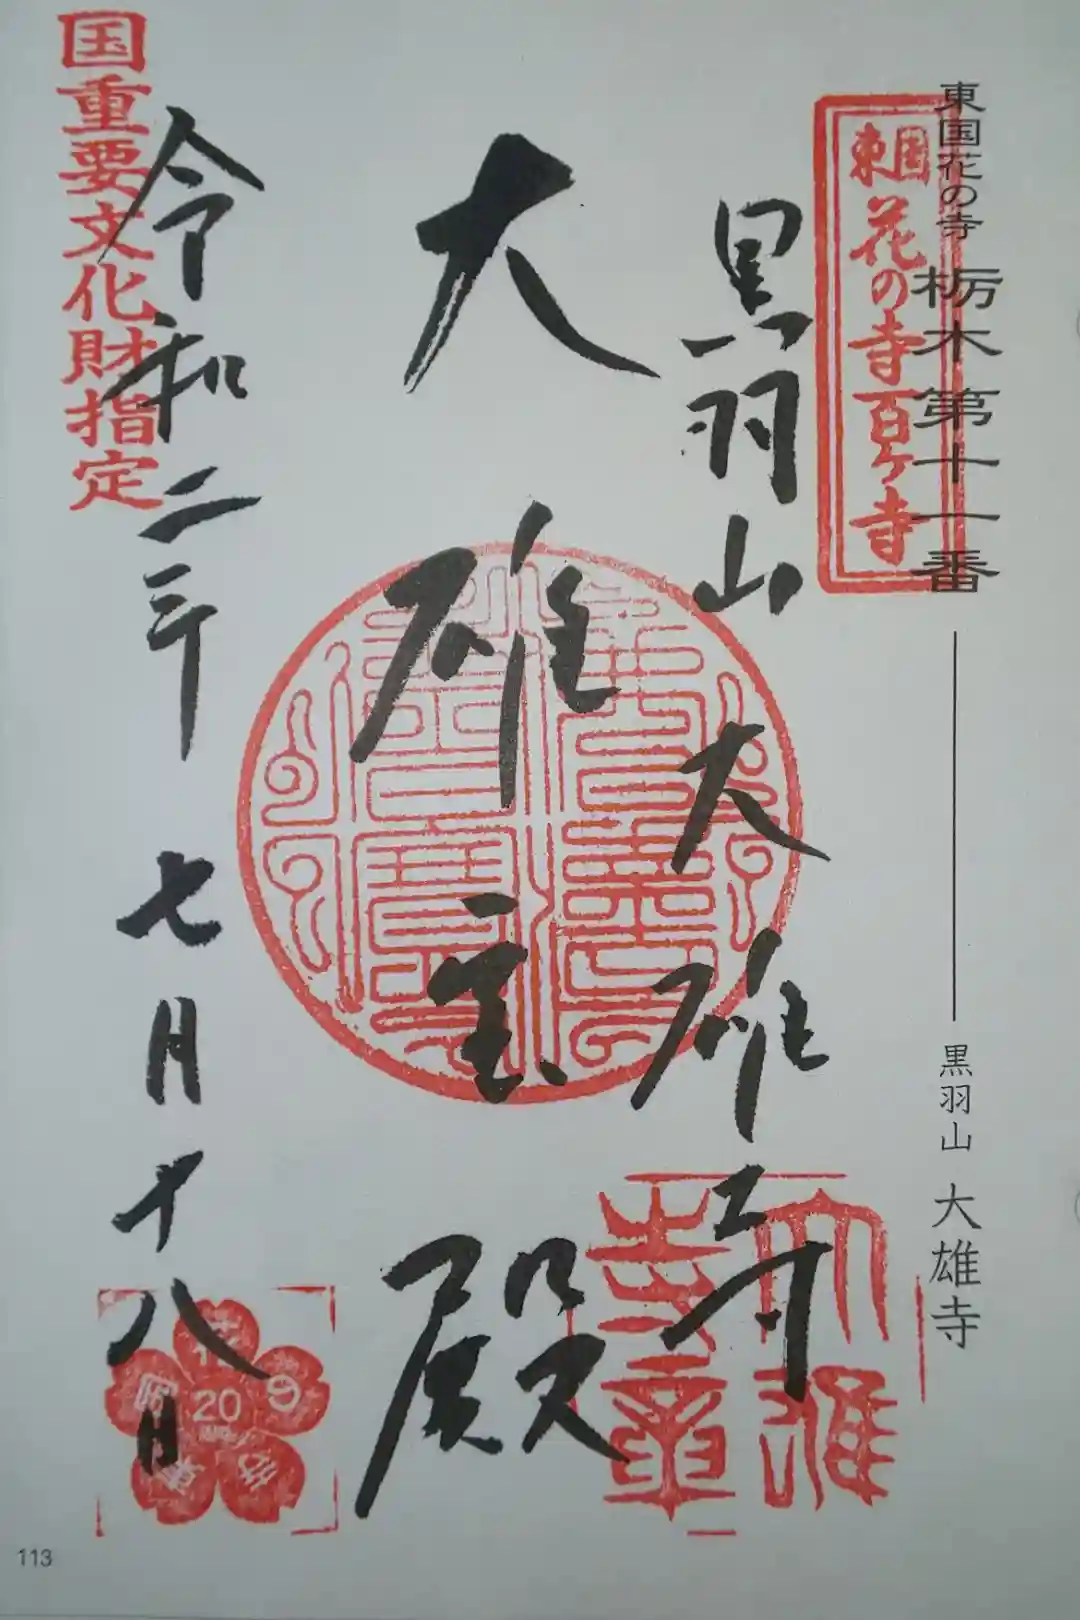 東国花の寺 栃木第十一番 黒羽山 大雄寺
東国花の寺百ヶ寺
黒羽山大雄寺
大雄宝殿
令和二年七月十八日
国重要文化財指定
大雄
寺章
20
113